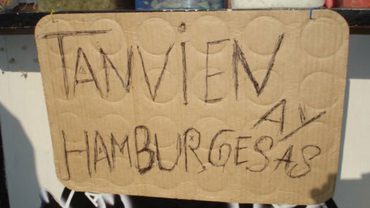 TANVIEN
AY
HAMBURGESAS